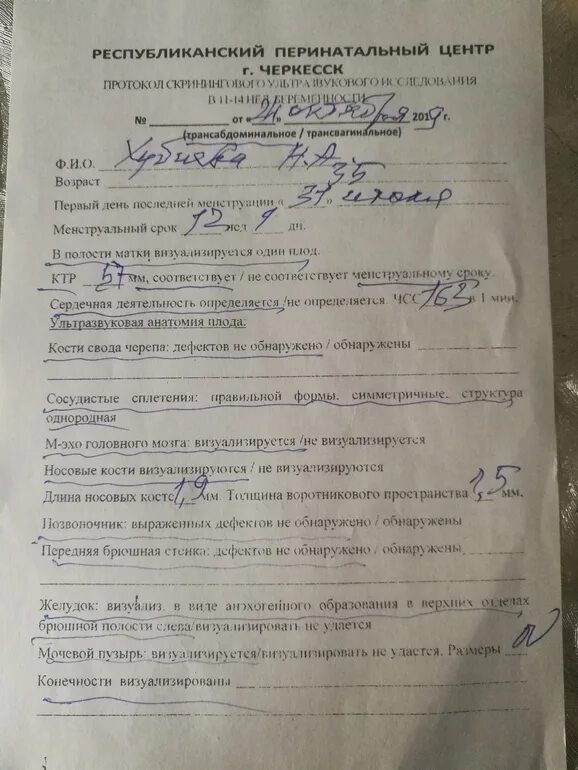 РЕСПУБЛИКАНСКИЙ ПЕРИНАТАЛЬНЫЙ ЦЕНТР
г. ЧЕРКЕССК
ПРОТОКОЛ СКРИНИНГОВОГО УЛЬТРАЗВУКОВОГО ИССЛЕДОВАНИЯ
В 11-14 НЕД БЕРЕМЕННОСТИ
№ от « » октября 2019 г.
(трансабдоминальное / трансвагинальное)
Ф.И.О. Н.А.
Возраст 35
Первый день последней менструации « 31 »
Менструальный срок 12 нед 1 дн.
В полости матки визуализируется один плод.
КТР 57 мм, соответствует / не соответствует менструальному сроку.
Сердечная деятельность определяется /не определяется. ЧСС 163 в 1 мин.
Ультразвуковая анатомия плода:
Кости свода черепа: дефектов не обнаружено / обнаружены
Сосудистые сплетения: правильной формы, симметричные, структура
однородная
М-эхо головного мозга: визуализируется /не визуализируется
Носовые кости визуализируются / не визуализируются
Длина носовых косте 1,9 мм. Толщина воротникового пространства 1,5 мм.
Позвоночник: выраженных дефектов не обнаружено / обнаружены
Передняя брюшная стенка: дефектов не обнаружено / обнаружены
Желудок: визуализ. в виде анэхогенного образования в верхних отделах
брюшной полости слева/визуализировать не удается
Мочевой пузырь: визуализируется/визуализировать не удается. Размеры
Конечности визуализированы